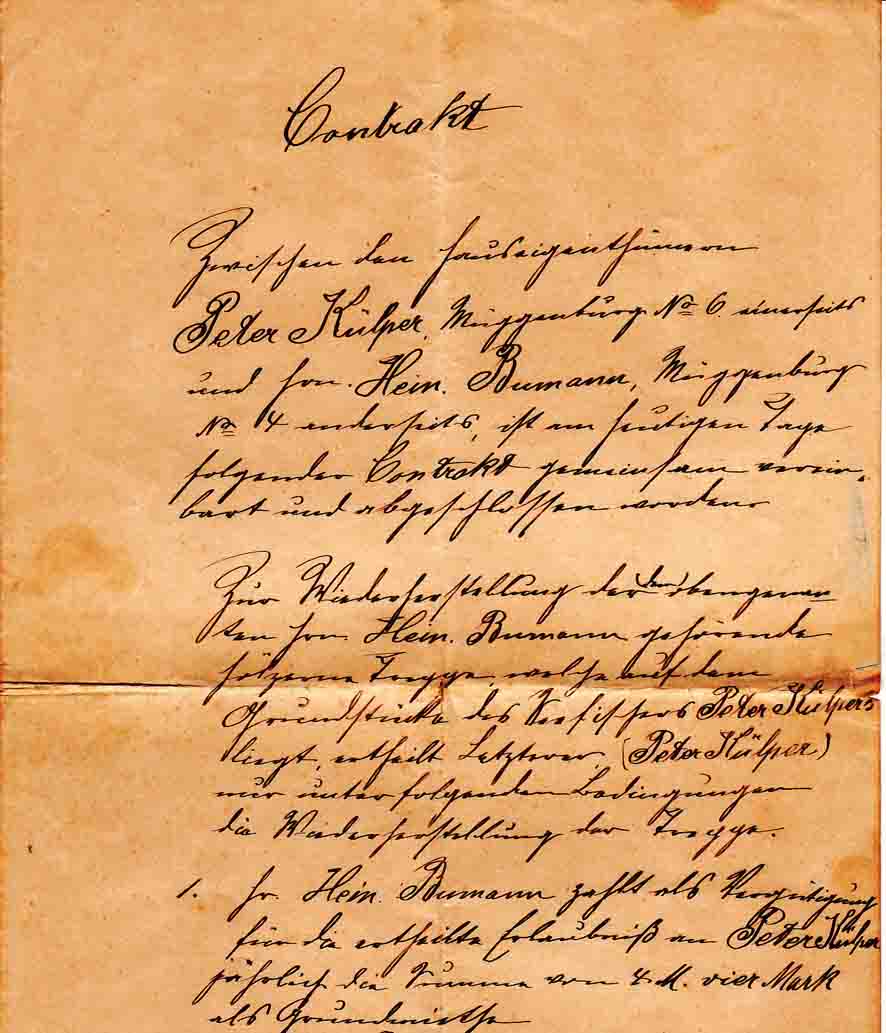 Contrakt
Zwischen den Hauseigenthümern
Peter Külper, Müggenburg No 6. einerseits
und Hrn. Hein. Bumann, Müggenburg
No 4 anderseits, ist am heutigen Tage
folgender Contrakt gemeinsam verein-
bart und abgeschlossen worden.
Zur Wiederherstellung der dem obengenan
ten Hrn. Hein. Bumann gehörende
hölzerne Treppe, welche auf dem
Grundstücke des Besitzers Peter Külpers
liegt, ertheilt Letzterer, (Peter Külper)
nur unter folgenden Bedingungen
die Wiederherstellung der Treppe.
1. Hr. Hein. Bumann zahlt als Vergütigung
für die ertheilte Erlaubniß an Peter Külper
jährlich die Summe von 4 M. vier Mark
als Grundmiethe